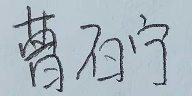 曹石宁